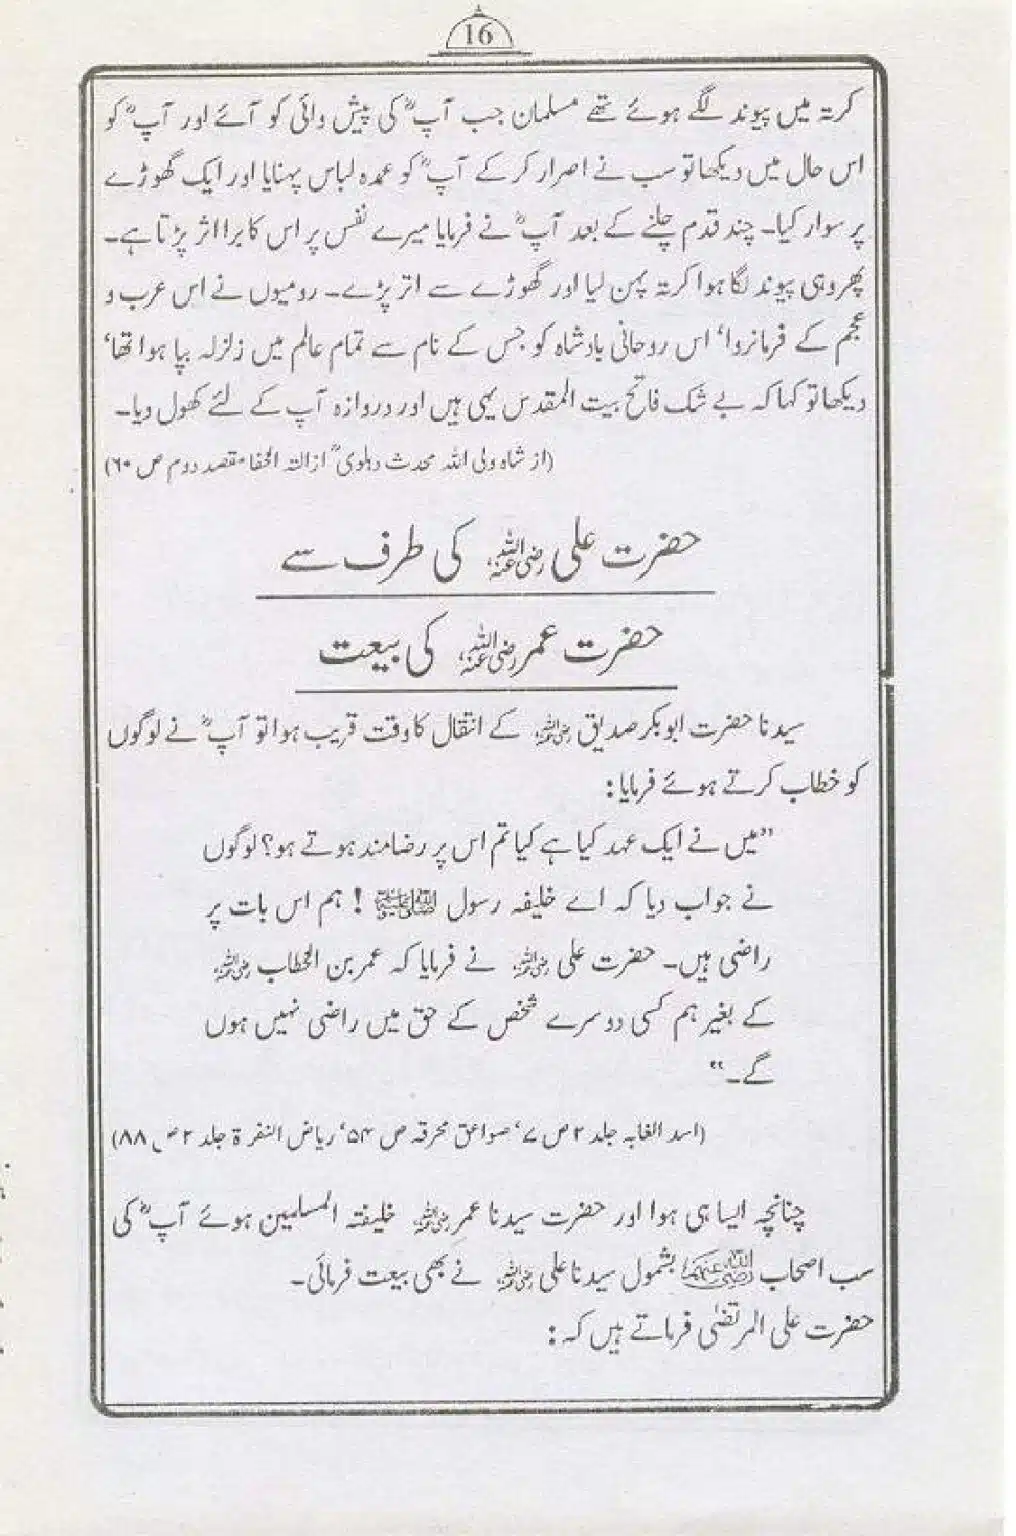 16
کرتہ میں پیوند لگے ہوئے تھے مسلمان جب آپؓ کی پیش وائی کو آئے اور آپؓ کو
اس حال میں دیکھا تو سب نے اصرار کر کے آپؓ کو عمدہ لباس پہنایا اور ایک گھوڑے
پر سوار کیا۔ چند قدم چلنے کے بعد آپؓ نے فرمایا میرے نفس پر اس کا برا اثر پڑتا ہے۔
پھر وہی پیوند لگا ہوا کرتہ پہن لیا اور گھوڑے سے اتر پڑے۔ رومیوں نے اس عرب و
عجم کے فرمانروا، اس روحانی بادشاہ کو جس کے نام سے تمام عالم میں زلزلہ بپا ہوا تھا،
دیکھا تو کہا کہ بے شک فاتح بیت المقدس یہی ہیں اور دروازہ آپ کے لئے کھول دیا۔
(از شاہ ولی اللہ محدث دہلویؒ ازالتہ الخفا مقصد دوم ص ۶۰)
حضرت علی رضی اللہ عنہ کی طرف سے
حضرت عمر رضی اللہ عنہ کی بیعت
سیدنا حضرت ابوبکر صدیق رضی اللہ عنہ کے انتقال کا وقت قریب ہوا تو آپؓ نے لوگوں
کو خطاب کرتے ہوئے فرمایا:
”میں نے ایک عہد کیا ہے کیا تم اس پر رضامند ہوتے ہو؟ لوگوں
نے جواب دیا کہ اے خلیفہ رسول صلی اللہ علیہ وسلم! ہم اس بات پر
راضی ہیں۔ حضرت علی رضی اللہ عنہ نے فرمایا کہ عمر بن الخطاب رضی اللہ عنہ
کے بغیر ہم کسی دوسرے شخص کے حق میں راضی نہیں ہوں
گے۔“
(اسد الغابہ جلد ۲ ص ۷، صواعق محرقہ ص ۵۴، ریاض النفرۃ جلد ۲ ص ۸۸)
چنانچہ ایسا ہی ہوا اور حضرت سیدنا عمر رضی اللہ عنہ خلیفتہ المسلمین ہوئے آپؓ کی
سب اصحاب رضی اللہ عنہم بشمول سیدنا علی رضی اللہ عنہ نے بھی بیعت فرمائی۔
حضرت علی المرتضٰی فرماتے ہیں کہ: